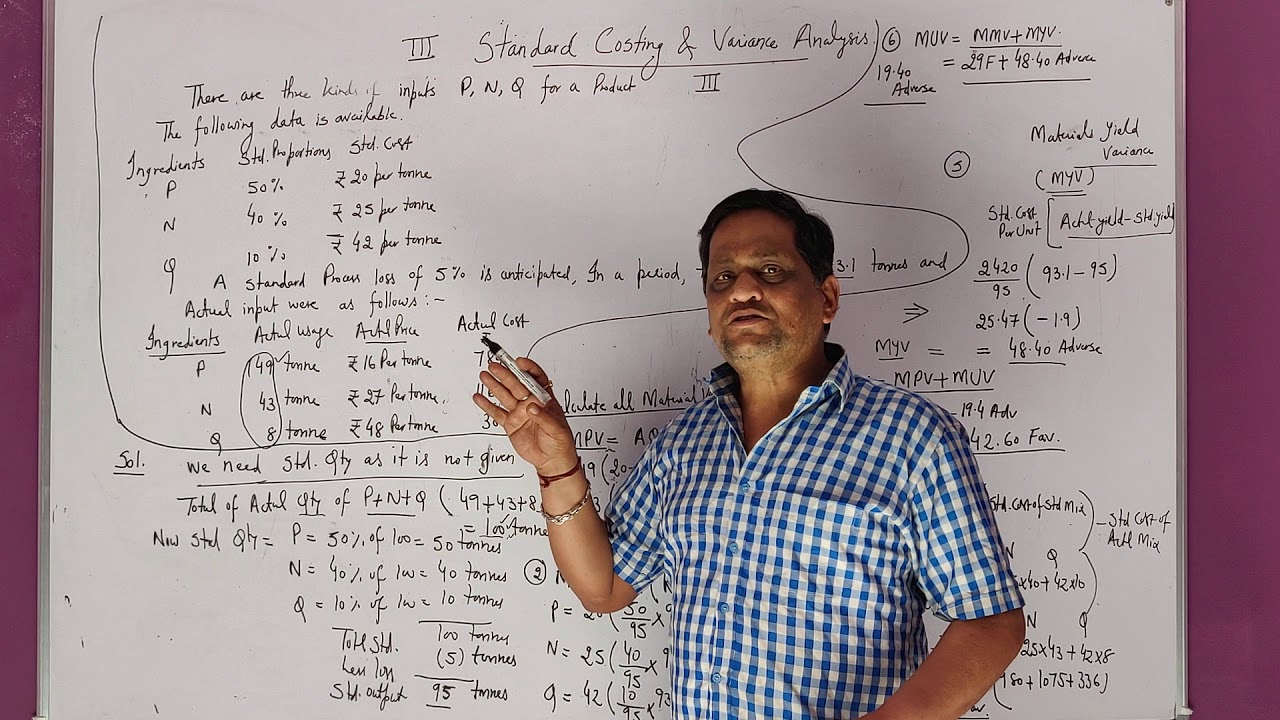 III Standard Costing & Variance Analysis.
There are three kinds of inputs P, N, Q for a Product III
The following data is available.
Ingredients Std. Proportions Std. Cost
P 50% ₹ 20 per tonne
N 40% ₹ 25 per tonne
Q 10% ₹ 42 per tonne
A standard Process loss of 5% is anticipated, In a period, 3.1 tonnes and
Actual input were as follows :-
Ingredients Actul usage Actl Price Actul Cost
P 49 tonne ₹ 16 Per tonne
N 43 tonne ₹ 27 Per tonne.
Q 8 tonne ₹ 48 Per tonne
Calculate all Material
Sol. We need Std. Qty as it is not given
Total of Actul Qty of P+N+Q (49+43+8
= 100 tonne
Now Std Qty = P = 50% of 100 = 50 tonnes
N = 40% of 100 = 40 tonnes
Q = 10% of 100 = 10 tonnes
Total Std. 100 tonnes
Less loss (5) tonnes
Std. output 95 tonnes
MPV =
(20-
②
P = 20 (50/95 x 9
N = 25 (40/95 x 9
Q = 42 (10/95 x 93
⑥ MUV = MMV + MYV.
= 29F + 48.40 Adverse
19.40 Adverse
⑤ Materials Yield Variance
(MYV)
Std. Cost Per Unit [Actl yield - Std. yield]
2420/95 (93.1 - 95)
⇒ 25.47 (-1.9)
MYV = = 48.40 Adverse
MPV + MUV
- 19.4 Adv
42.60 Fav.
Std. cost of Std Mix - Std Cost of Actl Mix
N Q
5x40 + 42x10
N Q
25x43 + 42x8
980 + 1075 + 336)
Fav.